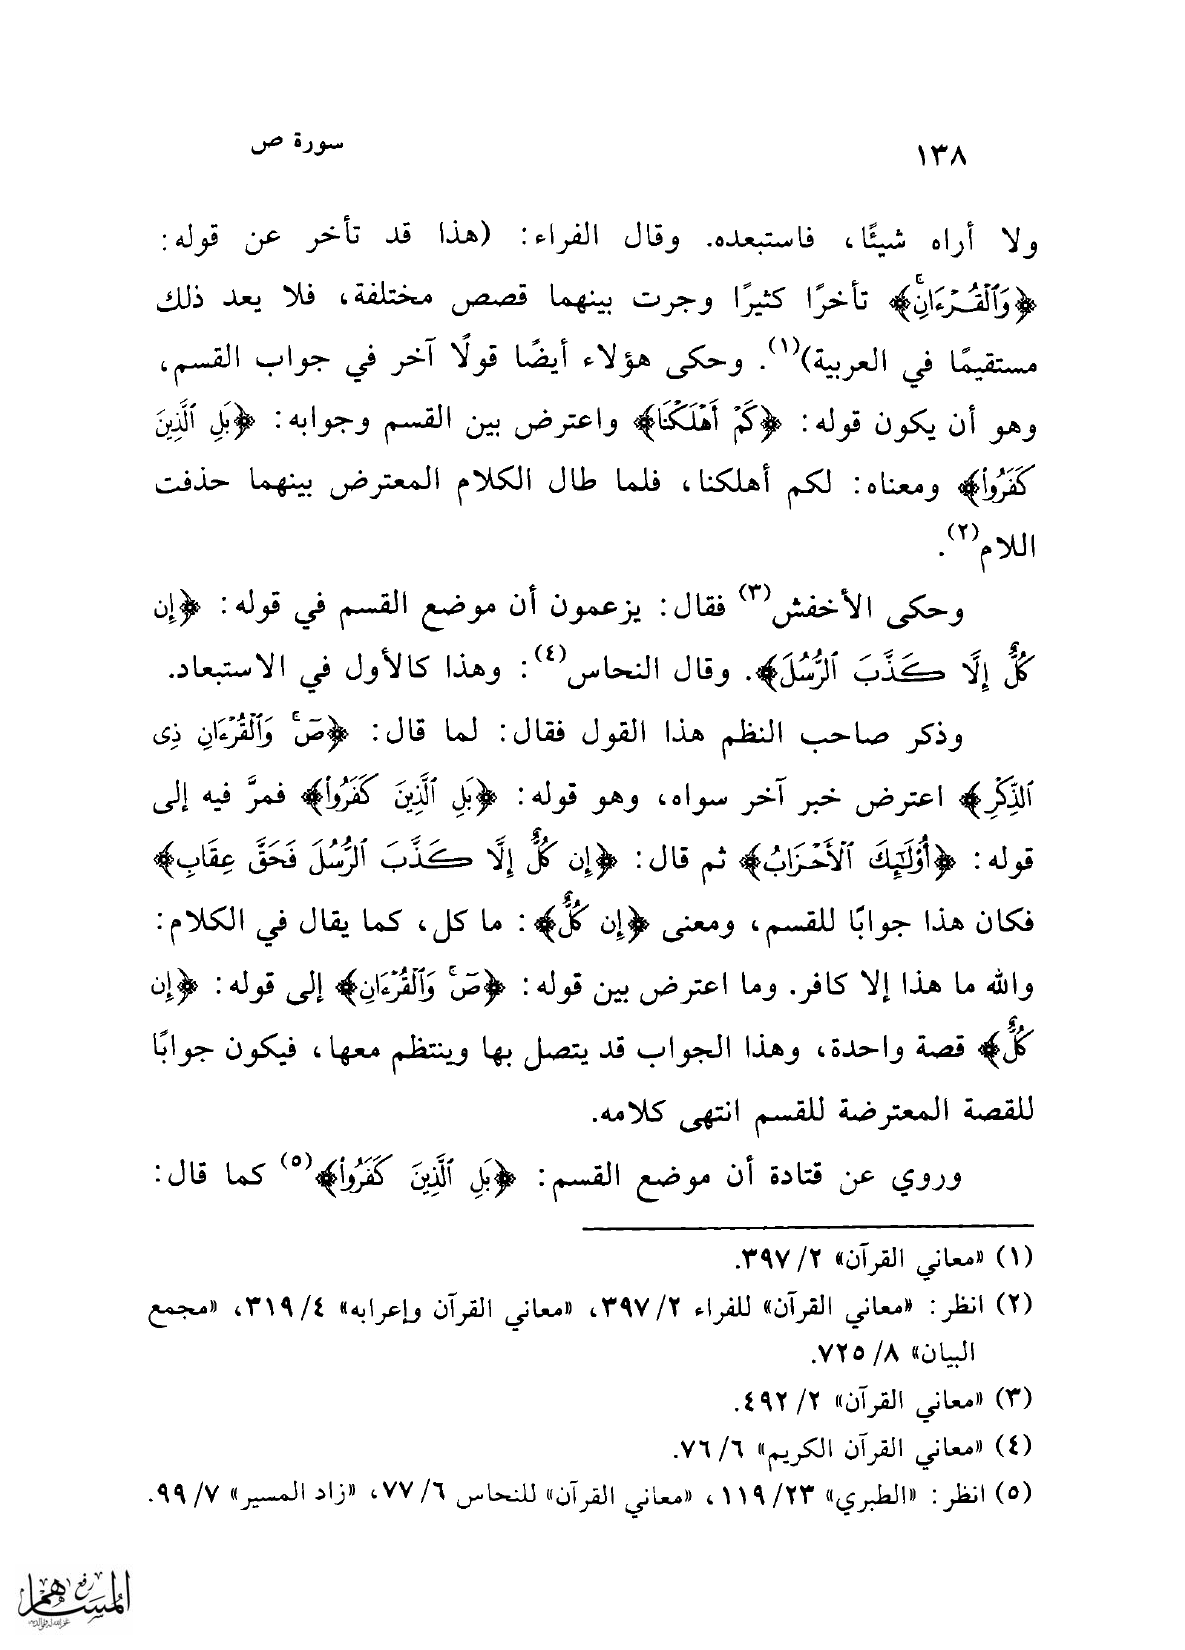 ١٣٨
سورة ص
ولا أراه شيئًا، فاستبعده. وقال الفراء: (هذا قد تأخر عن قوله:
﴿وَٱلۡقُرۡءَانِۚ﴾ تأخرًا كثيرًا وجرت بينهما قصص مختلفة، فلا يعد ذلك
مستقيمًا في العربية)(١). وحكى هؤلاء أيضًا قولًا آخر في جواب القسم،
وهو أن يكون قوله: ﴿كَمۡ أَهۡلَكۡنَا﴾ واعترض بين القسم وجوابه: ﴿بَلِ ٱلَّذِينَ
كَفَرُواْ﴾ ومعناه: لكم أهلكنا، فلما طال الكلام المعترض بينهما حذفت
اللام(٢).
وحكى الأخفش(٣) فقال: يزعمون أن موضع القسم في قوله: ﴿إِن
كُلٌّ إِلَّا كَذَّبَ ٱلرُّسُلَ﴾. وقال النحاس(٤): وهذا كالأول في الاستبعاد.
وذكر صاحب النظم هذا القول فقال: لما قال: ﴿صٓۚ وَٱلۡقُرۡءَانِ ذِي
ٱلذِّكۡرِ﴾ اعترض خبر آخر سواه، وهو قوله: ﴿بَلِ ٱلَّذِينَ كَفَرُواْ﴾ فمرَّ فيه إلى
قوله: ﴿أُوْلَٰٓئِكَ ٱلۡأَحۡزَابُ﴾ ثم قال: ﴿إِن كُلٌّ إِلَّا كَذَّبَ ٱلرُّسُلَ فَحَقَّ عِقَابِ﴾
فكان هذا جوابًا للقسم، ومعنى ﴿إِن كُلٌّ﴾: ما كل، كما يقال في الكلام:
والله ما هذا إلا كافر. وما اعترض بين قوله: ﴿صٓۚ وَٱلۡقُرۡءَانِ﴾ إلى قوله: ﴿إِن
كُلٌّ﴾ قصة واحدة، وهذا الجواب قد يتصل بها وينتظم معها، فيكون جوابًا
للقصة المعترضة للقسم انتهى كلامه.
وروي عن قتادة أن موضع القسم: ﴿بَلِ ٱلَّذِينَ كَفَرُواْ﴾(٥) كما قال:
(١) «معاني القرآن» ٢/ ٣٩٧.
(٢) انظر: «معاني القرآن» للفراء ٢/ ٣٩٧، «معاني القرآن وإعرابه» ٤/ ٣١٩، «مجمع
البيان» ٨/ ٧٢٥.
(٣) «معاني القرآن» ٢/ ٤٩٢.
(٤) «معاني القرآن الكريم» ٦/ ٧٦.
(٥) انظر: «الطبري» ٢٣/ ١١٩، «معاني القرآن» للنحاس ٦/ ٧٧، «زاد المسير» ٧/ ٩٩.
رفع
المساهم